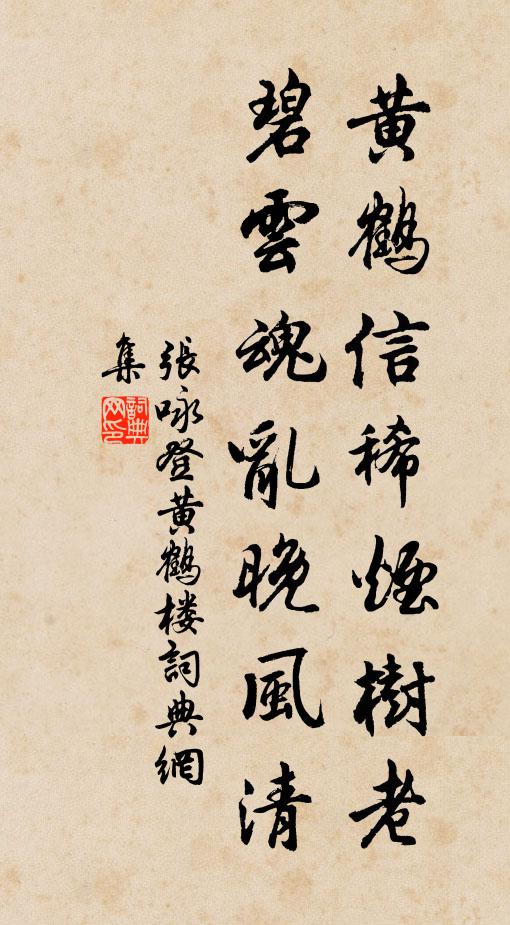 黄鶴信稀煙樹老
碧雲魂亂晚風清
張咏登黄鶴楼詞典網
集
詞典网印